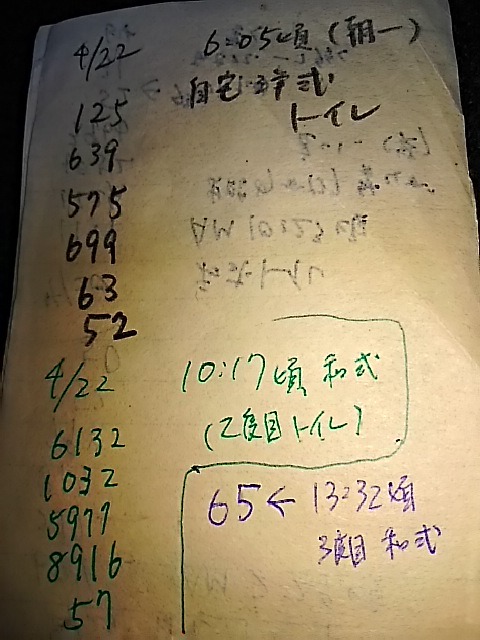 4/22 6:05頃（朝一）
自宅洋式
トイレ
125
639
575
699
63
52
4/22 10:17頃 和式
（2度目トイレ）
6132
1032
5977
8916
57
65← 13:32頃
3度目 和式